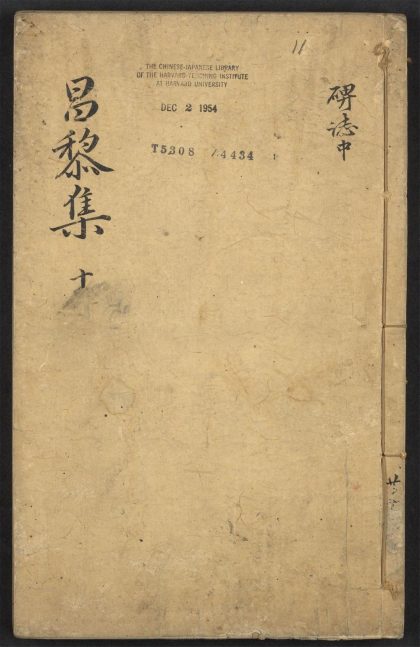 11
THE CHINESE-JAPANESE LIBRARY
OF THE HARVARD-YENCHING INSTITUTE
AT HARVARD UNIVERSITY
DEC 2 1954
T5308 / 4434
碑誌中
昌黎集 十